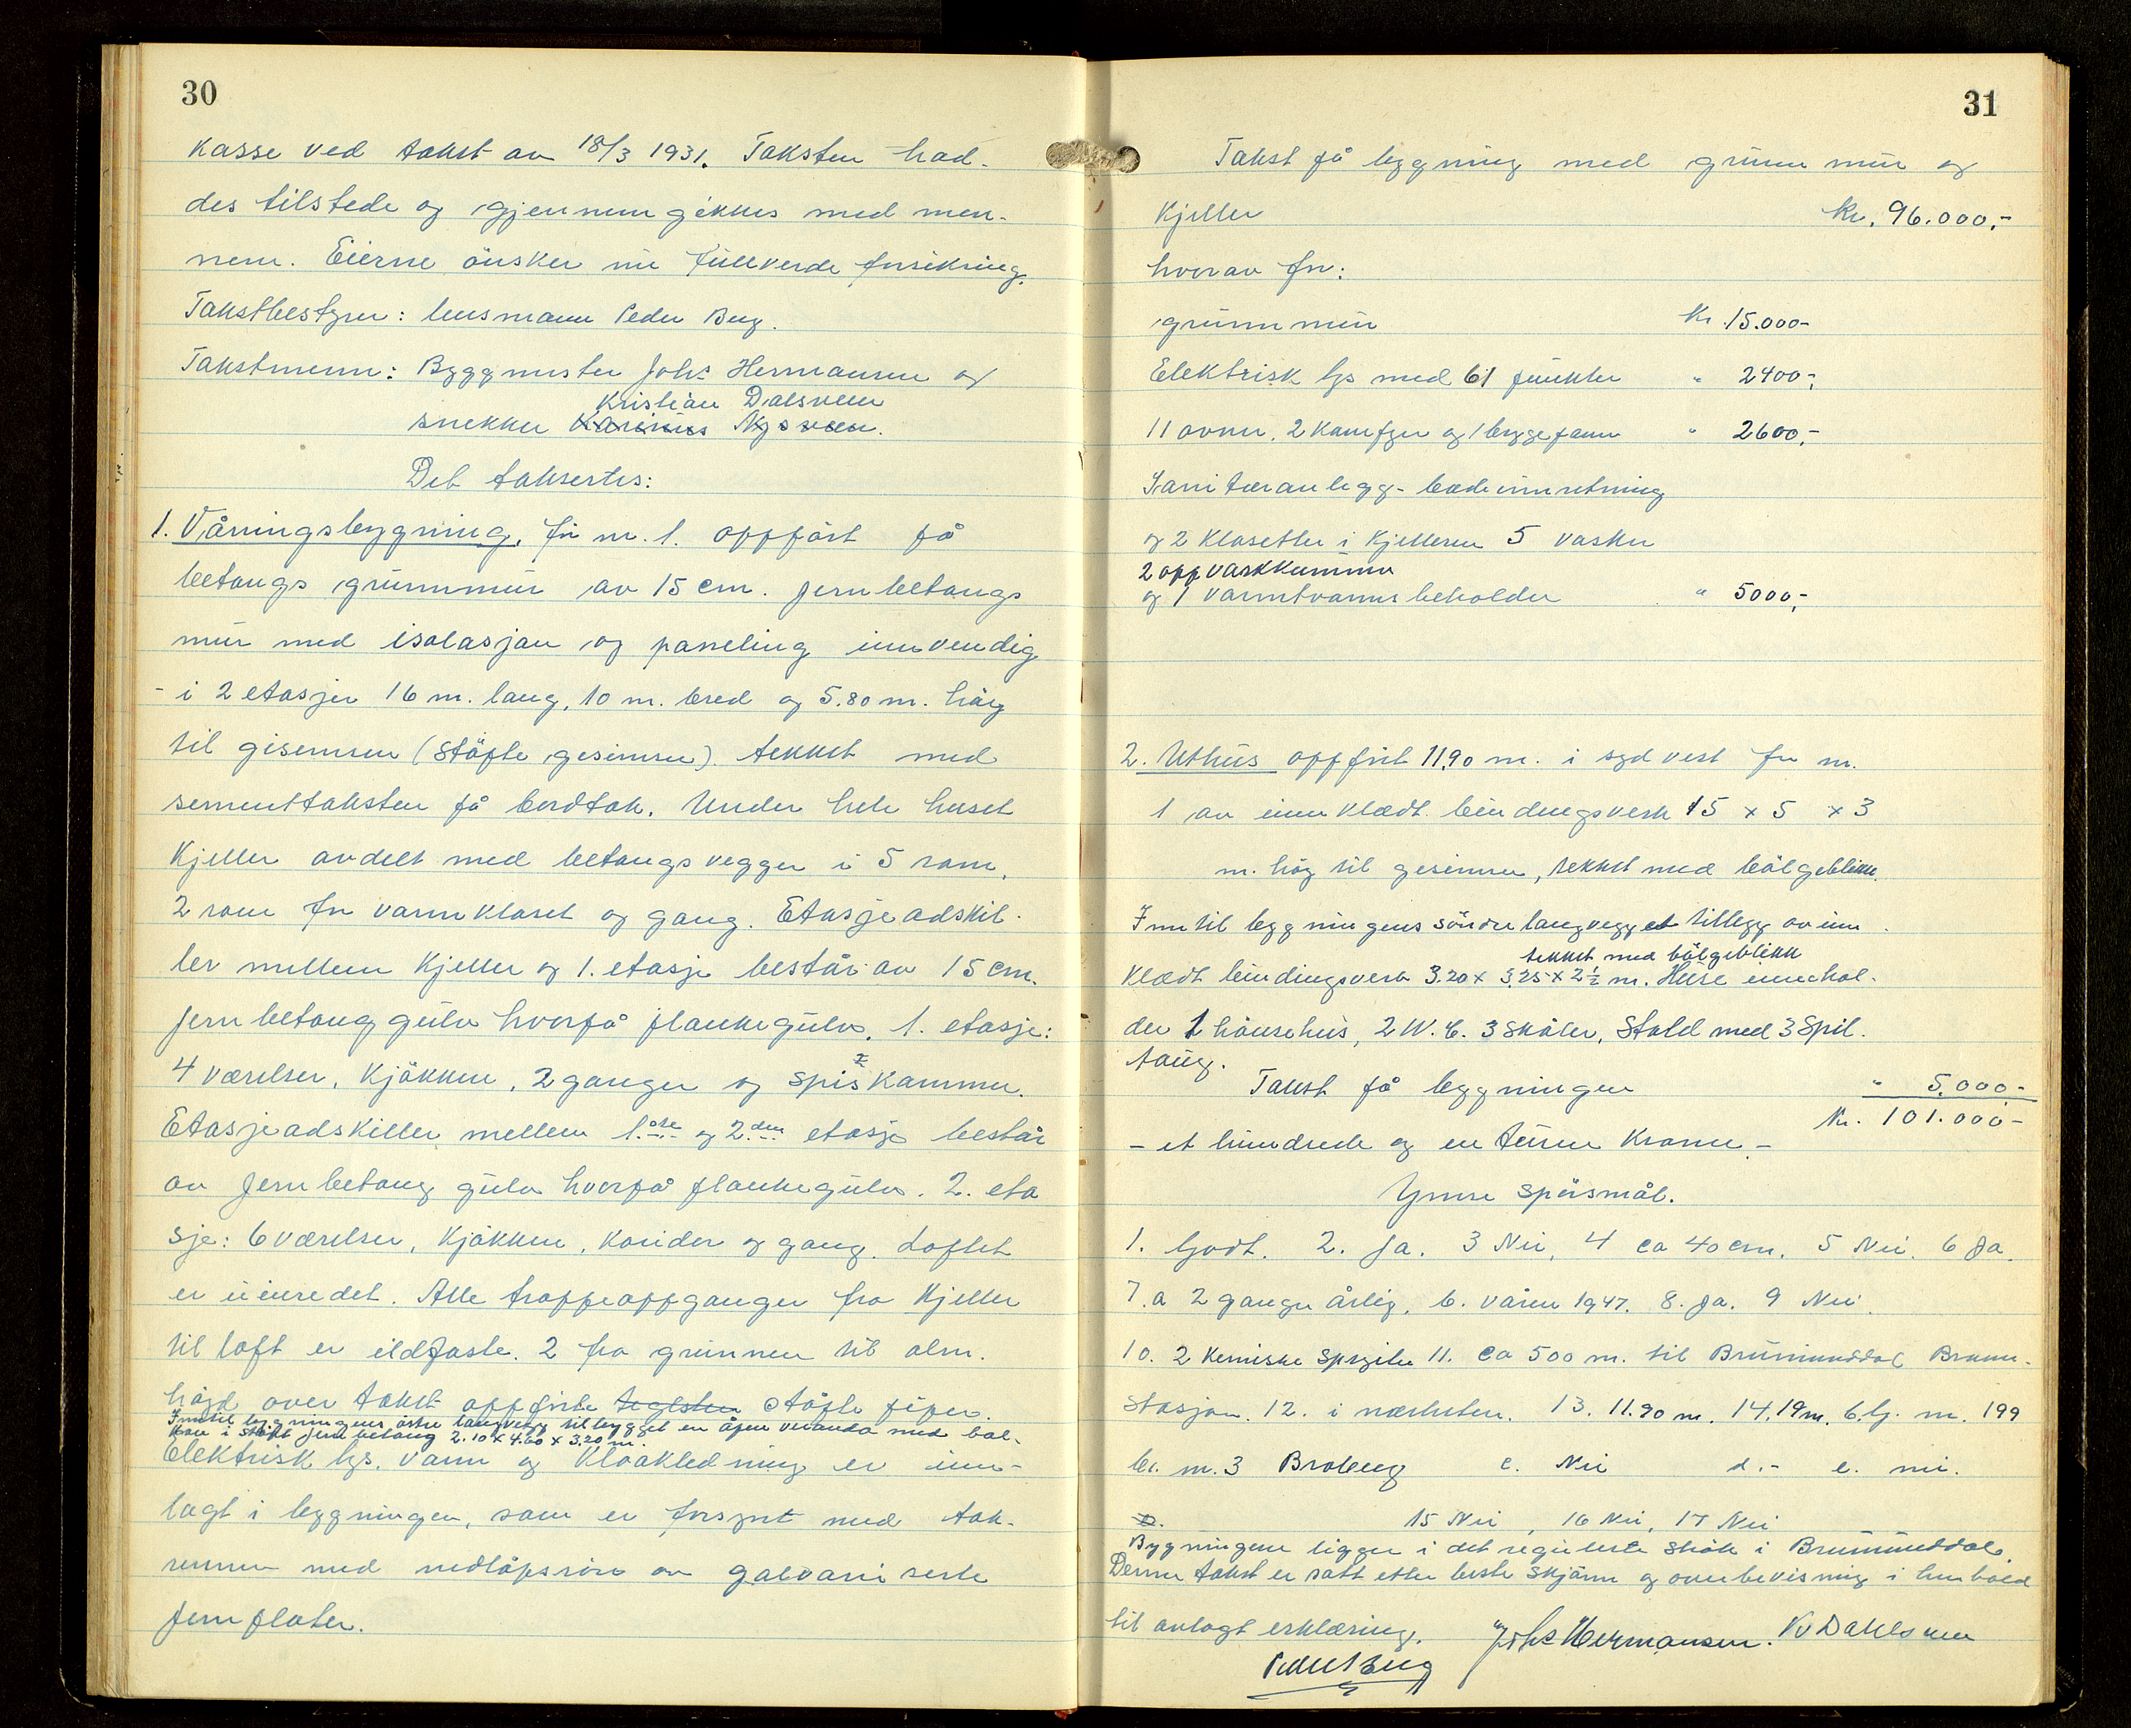 30
kasse ved takst av 18/3 1931. Taksten had-
des tilstede og gjennemgikkes med men-
nene. Eierne önsker nu fullverde forsikring.
Takstbestyrer: lensmann Peder Berg.
Takstmenn: Byggmester Johs Hermansen og
Kristian Dalsveen
snekker Karinius Nysveen.
Det takseres:
1. Våningsbygning, fr m. 1. oppfört på
betongs grunnmur av 15 cm. jernbetongs
mur med isolasjon og panneling innvendig
- i 2 etasjer 16 m. lang, 10 m. bred og 5.80 m. höig
til gisemsen (stöpte gesimser). tekket med
sementtaksten på bordtak. Under hele huset
kjeller avdelt med betongs vegger i 5 rom,
2 rom for vannkloset og gang. Etasjeadskil-
ler mellem kjeller og 1. etasje består av 15 cm.
jernbetong gulv hvorpå plankegulv. 1. etasje:
4 værelser, kjökken, 2 ganger og spiskammer.
Etasjeadskiller mellem 1.ste og 2.den etasje består
av jernbetong gulv hvorpå plankegulv. 2. eta
sje: 6 værelser, kjökken, koridor og gang. Loftet
er uinredet. Alle troppeoppganger fra kjeller
til loft er ildfaste. 2 fra grunnen til alm.
höjd over taket oppförte teglsten stöpte piper.
Inntil bygningens östre langvegg tilbygget en åpen veranda med bal-
kon i støpt jernbetong 2.10 x 4.60 x 3.20 m.
Elektrisk lys, vann og kloakledning er inn-
lagt i bygningen, som er forsynt med tak-
renner med nedlöpsrör av galvaniserte
jernplater.
31
Takst på bygning med grunnmur og
kjeller kr. 96.000,-
hvorav for:
grunnmur kr 15.000-
Elektrisk lys med 61 punkter " 2400,-
11 ovner, 2 komfyr og 1 bryggepanne " 2600,-
Sanitæranlegg - badeinnretning
og 2 klosetter i kjelleren 5 vasker
2 oppvaskkummer
og 1 varmtvannsbeholder " 5000,-
2. Uthus oppfört 11.90 m. i sydvest for m.
1 av innklædt bindingsverk 15 x 5 x 3
m. höy til gesimsen, tekket med bölgeblikk.
Inntil bygningens söndre langvegg et tillegg av inn
tekket med bölgeblikk
klædt bindingsverk 3.20 x 3.25 x 2½ m. Huse innehol-
der 1 hönsehus, 2 W.C. 3 skåler, Stald med 3 Spil-
taug.
Takst på bygningen " 5.000,-
kr. 101.000-
- et hundrede og en tusen kroner -
Ymse spörsmål.
1. Godt. 2. Ja. 3 Nei, 4 ca 40 cm. 5 Nei. 6 Ja.
7. a 2 ganger årlig. b. våren 1947. 8. Ja. 9 Nei.
10. 2 kemiske spröiter 11. ca 500 m. til Brumunddal Brann-
stasjon. 12. i nærheten. 13. 11.90 m. 14. 19 m. b. lj. m. 199
br. m. 3 Broberg c. Nei d. - e. nei.
15 Nei, 16 Nei, 17 Nei
Bygningene ligger i det regulerte strök i Brumunddal.
Denne takst er satt etter beste skjönn og overbevisning i henhold
til avlagt erklæring.
Johs Hermansen. Kr Dahlsveen
Peder Berg